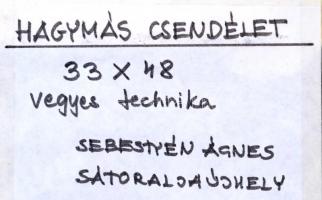 HAGYMÁS CSENDÉLET
33 X 48
vegyes technika
SEBESTYÉN ÁGNES
SÁTORALJAÚJHELY